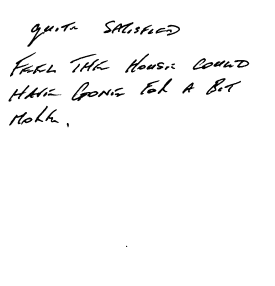 QUITE SATISFIED
FEEL THE HOUSE COULD
HAVE GONE FOR A BIT
MORE.